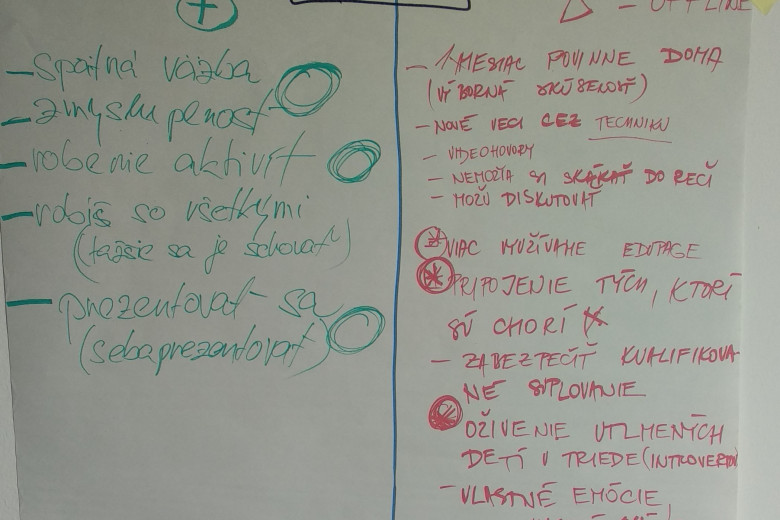 +
- spätná väzba
- zmysluplnosť
- robenie aktivít
- robíš so všetkými
(ťažšie sa je schovať)
- prezentovať sa
(sebaprezentovať)
- OFFLINE
- 1 MESIAC POVINNE DOMA
(VÝBORNÁ SKÚSENOSŤ)
- NOVÉ VECI CEZ TECHNIKU
- VIDEOHOVORY
- NEMOŽIA SI SKÁKAŤ DO REČI
- MOŽU DISKUTOVAŤ
VIAC VUŽÍVAME EDUPAGE
PRIPOJENIE TÝCH, KTORÍ
SÚ CHORÍ
- ZABEZPEČIŤ KVALIFIKOVA-
NÉ SUPLOVANIE
OŽIVENIE UTLMENÝCH
DETÍ V TRIEDE (INTROVERTOV)
- VLASTNÉ EMÓCIE,